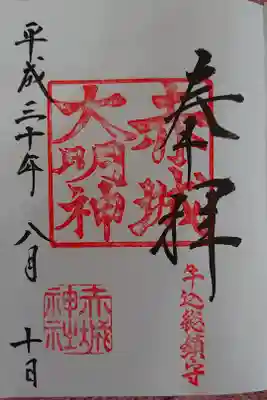 奉拝
赤城
大明神
牛込総鎮守
赤城
神社
平成三十年八月十日